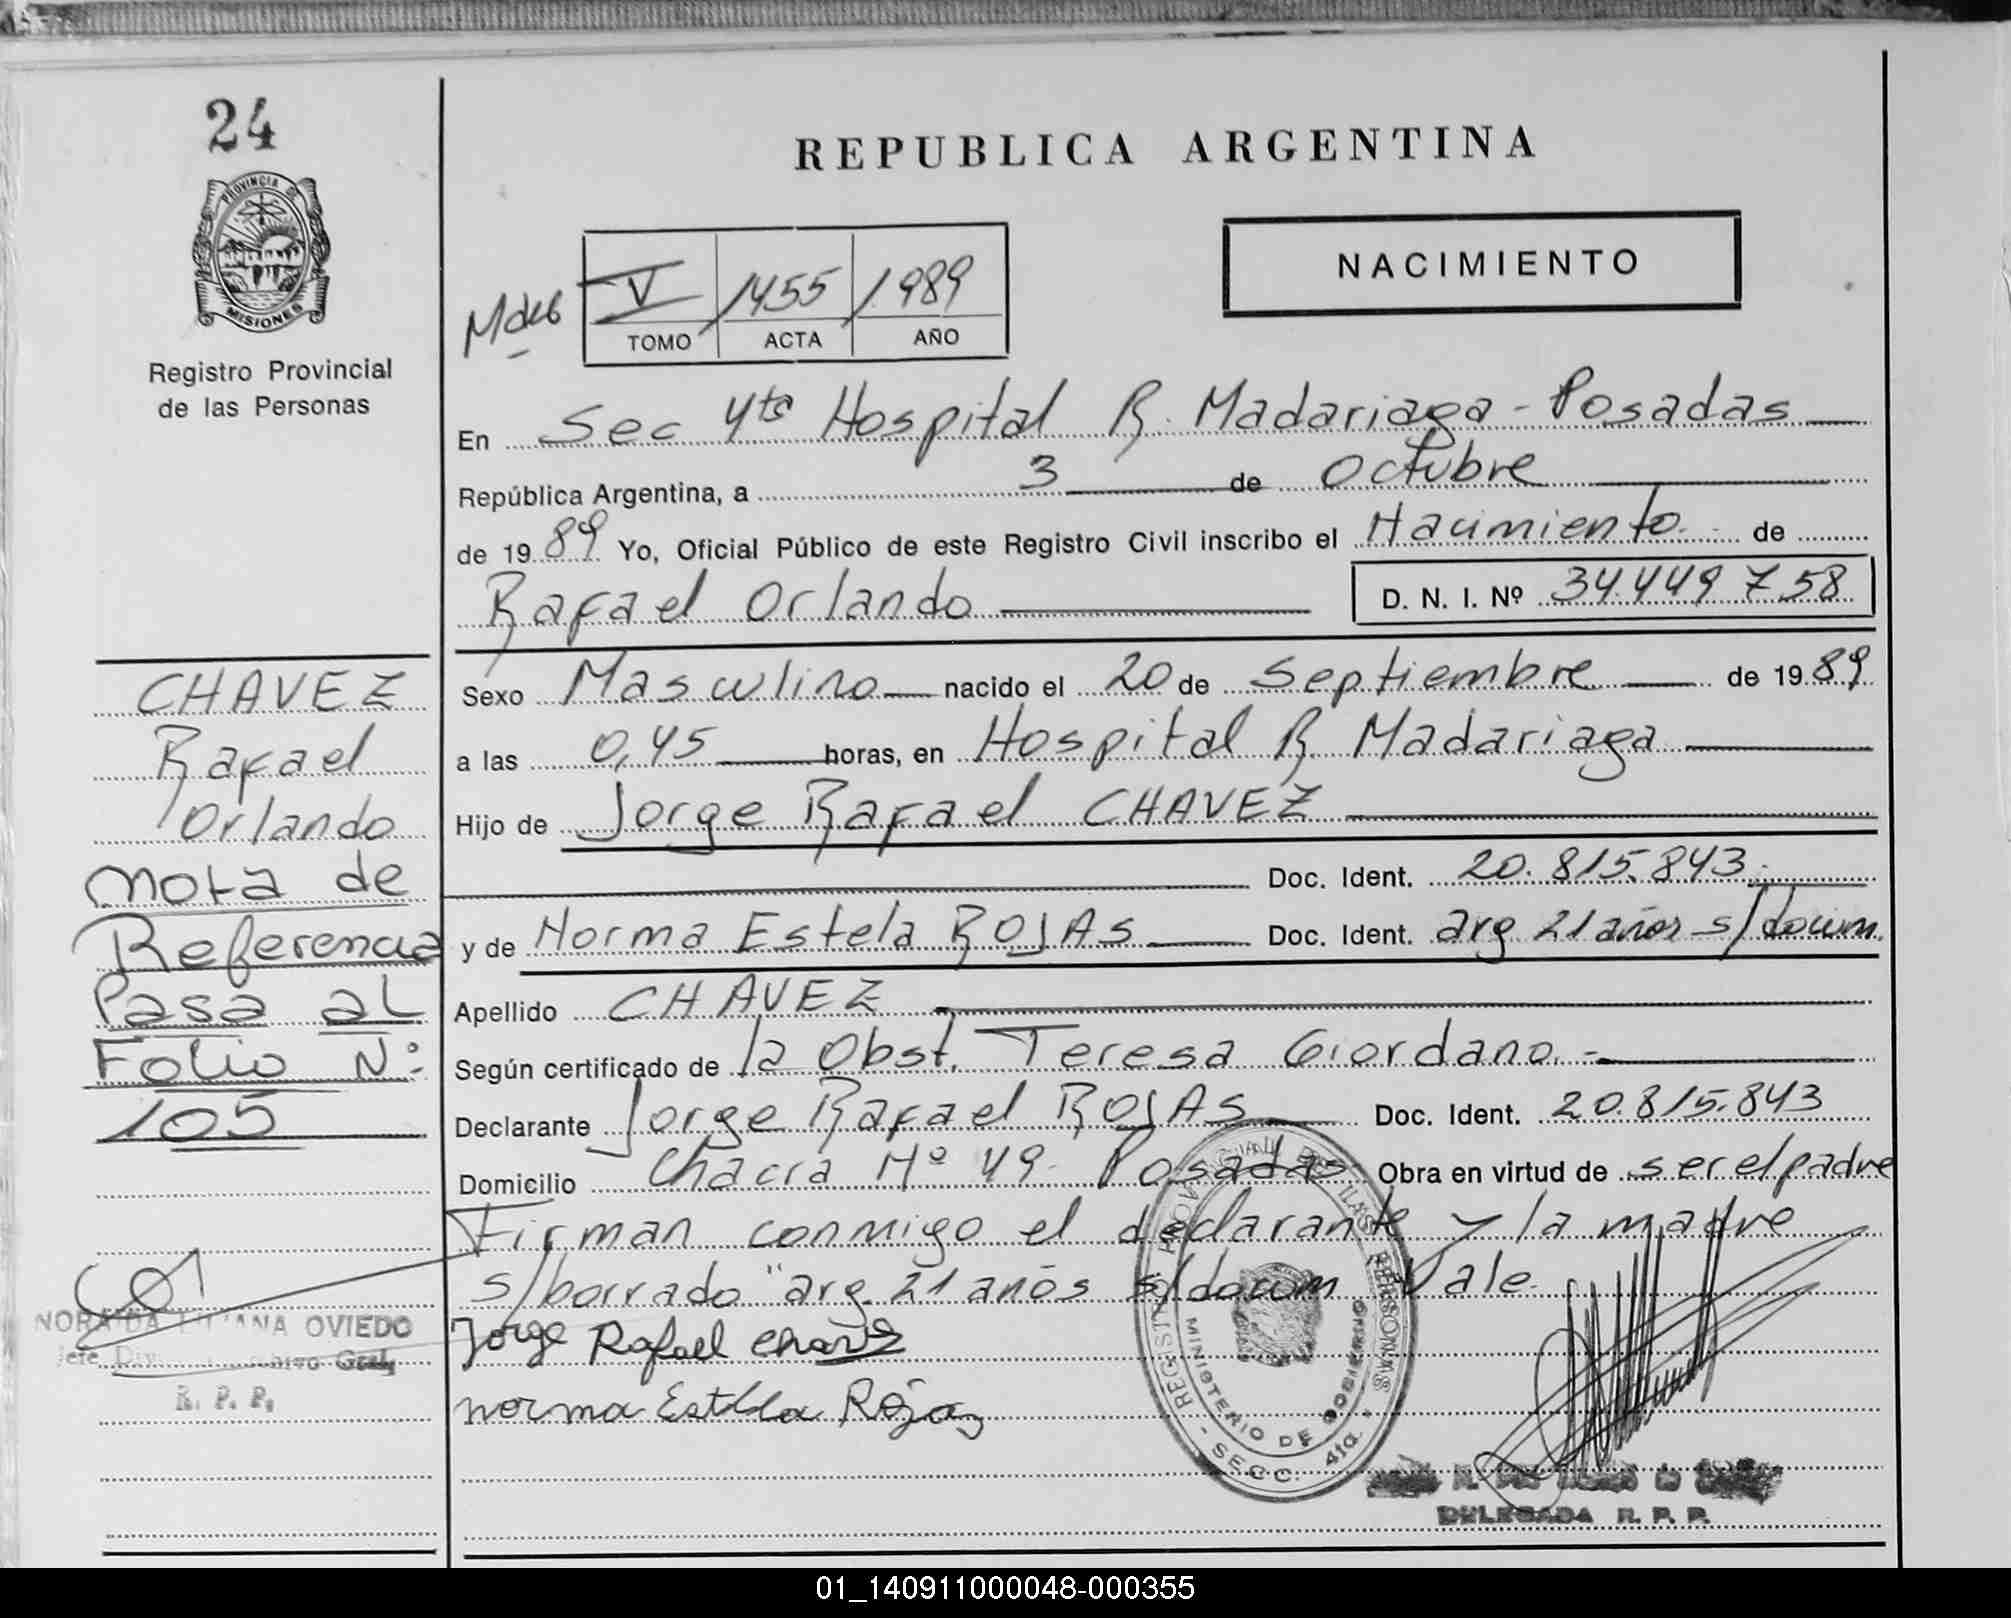 24
PROVINCIA DE
MISIONES
Registro Provincial
de las Personas
REPUBLICA ARGENTINA
NACIMIENTO
V 1455 1.989
TOMO ACTA AÑO
En Sec 4ta Hospital R. Madariaga - Posadas
República Argentina, a 3 de Octubre
de 1989 Yo, Oficial Público de este Registro Civil inscribo el Nacimiento de
Rafael Orlando D. N. I. Nº 34.449.758
Sexo Masculino nacido el 20 de Septiembre de 1989
a las 0,45 horas, en Hospital R. Madariaga
Hijo de Jorge Rafael CHAVEZ
Doc. Ident. 20.815.843
y de Norma Estela ROJAS Doc. Ident. arg 21 años s/docum.
Apellido CHAVEZ
Según certificado de la Obst. Teresa Giordano.-
Declarante Jorge Rafael ROJAS Doc. Ident. 20.815.843
Domicilio Chacra Nº 49 Posadas Obra en virtud de ser el padre
Firman conmigo el declarante y la madre
s/borrado "arg. 21 años s/docum Vale.
Jorge Rafael Chavez
Norma Estella Rojas
CHAVEZ
Rafael
Orlando
Nota de
Referencia
Pasa al
Folio Nº:
105
OVIEDO
R. P. P.
MINISTERIO DE GOBIERNO
- SECC. 4ta. -
DELEGADA R. P. P.
01_140911000048-000355